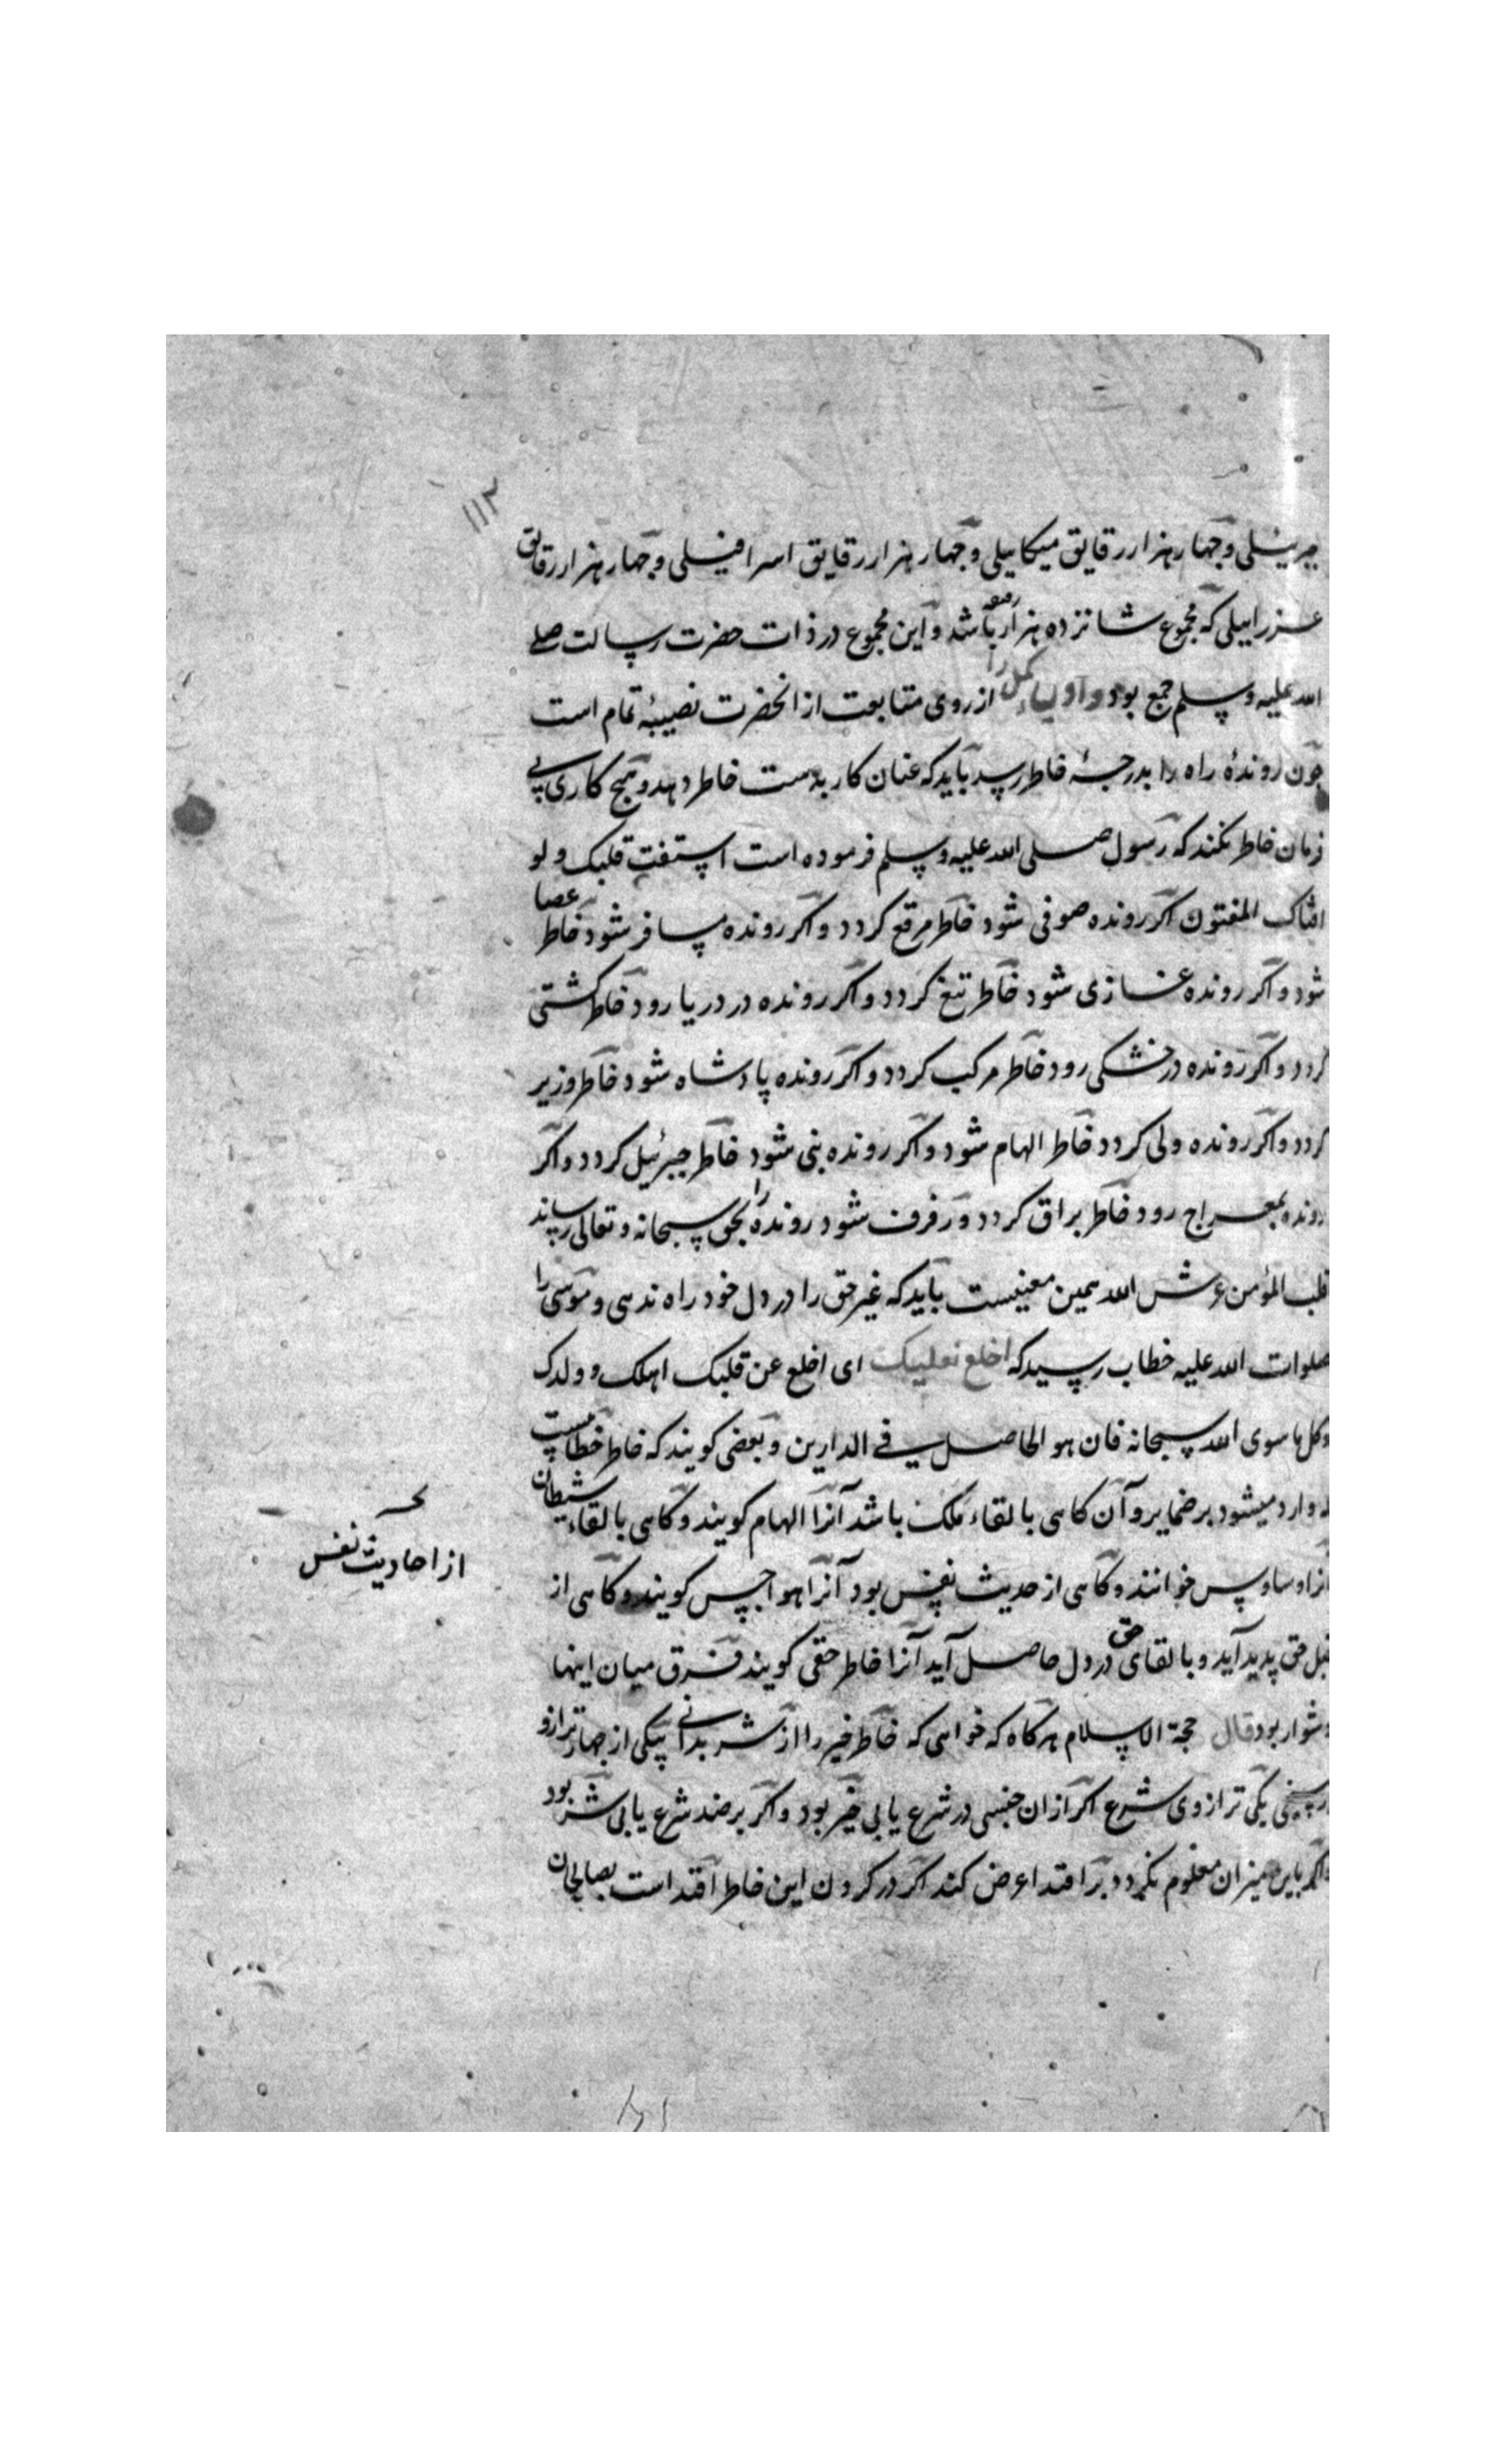 ۱۱۲
جبرئیلی و چهار هزار رقایق میکاییلی و چهار هزار رقایق اسرافیلی و چهار هزار رقایق
عزراییلی که مجموع شانزده هزار رقیقه باشد و این مجموع در ذات حضرت رسالت صلی
الله علیه وسلم جمع بود و اولیاء کمل را از روی متابعت از انحضرت نصیبهٔ تمام است
چون روندهٔ راه را بدرجهٔ خاطر رسد باید که عنان کار بدست خاطر دهد و هیچ کاری بی
فرمان خاطر نکند که رسول صلی الله علیه وسلم فرموده است استفت قلبک و لو
افتاک المفتون اکر رونده صوفی شود خاطر مرقع کردد و اکر رونده مسافر شود خاطر عصا
شود و اکر رونده غازی شود خاطر تیغ کردد و اکر رونده در دریا رود خاطر کشتی
کردد و اکر رونده در خشکی رود خاطر مرکب کردد و اکر رونده پادشاه شود خاطر وزیر
کردد و اکر رونده ولی کردد خاطر الهام شود و اکر رونده نبی شود خاطر جبرئیل کردد و اکر
رونده بمعراج رود خاطر براق کردد و رفرف شود رونده را بحق سبحانه و تعالی رساند
قلب المؤمن عرش الله همین معنیست باید که غیر حق را در دل خود راه ندهی و موسی را
صلوات الله علیه خطاب رسید که اخلع نعلیک ای اخلع عن قلبک اهلک و ولدک
وکل ما سوی الله سبحانه فان هو الحاصل فی الدارین و بعضی کویند که خاطر خطابیست
که وارد میشود بر ضمایر و آن کاهی بالقاء ملک باشد آنرا الهام کویند و کاهی بالقاء شیطان
آنرا وساوس خوانند و کاهی از حدیث نفس بود آنرا هواجس کویند و کاهی از
قبل حق پدید آید و بالقای حق در دل حاصل آید آنرا خاطر حقی کویند فرق میان اینها
دشوار بود قال حجة الاسلام هرکاه که خواهی که خاطر خیر را از شر بدانی بیکی از چهار ترازو
یکی ترازوی شرع اکر ازان جنسی در شرع یابی خیر بود و اکر بر ضد شرع یابی شر بود
واکر باین میزان معلوم نکردد بر اقتدا عرض کند اکر در کردن این خاطر اقتداست بصالحان
از احادیث نفس